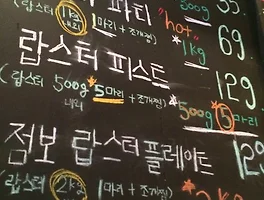 파티 500g 55.
(랍스터 1kg 1마리 + 조개찜) "hot" 1kg 69.
내외
랍스터 피스트 129.
(랍스터 500g 5마리 + 조개찜) 500g 5마리
내외
점보 랍스터 플레이트 129
(랍스터 2kg 1마리 + 조개찜)